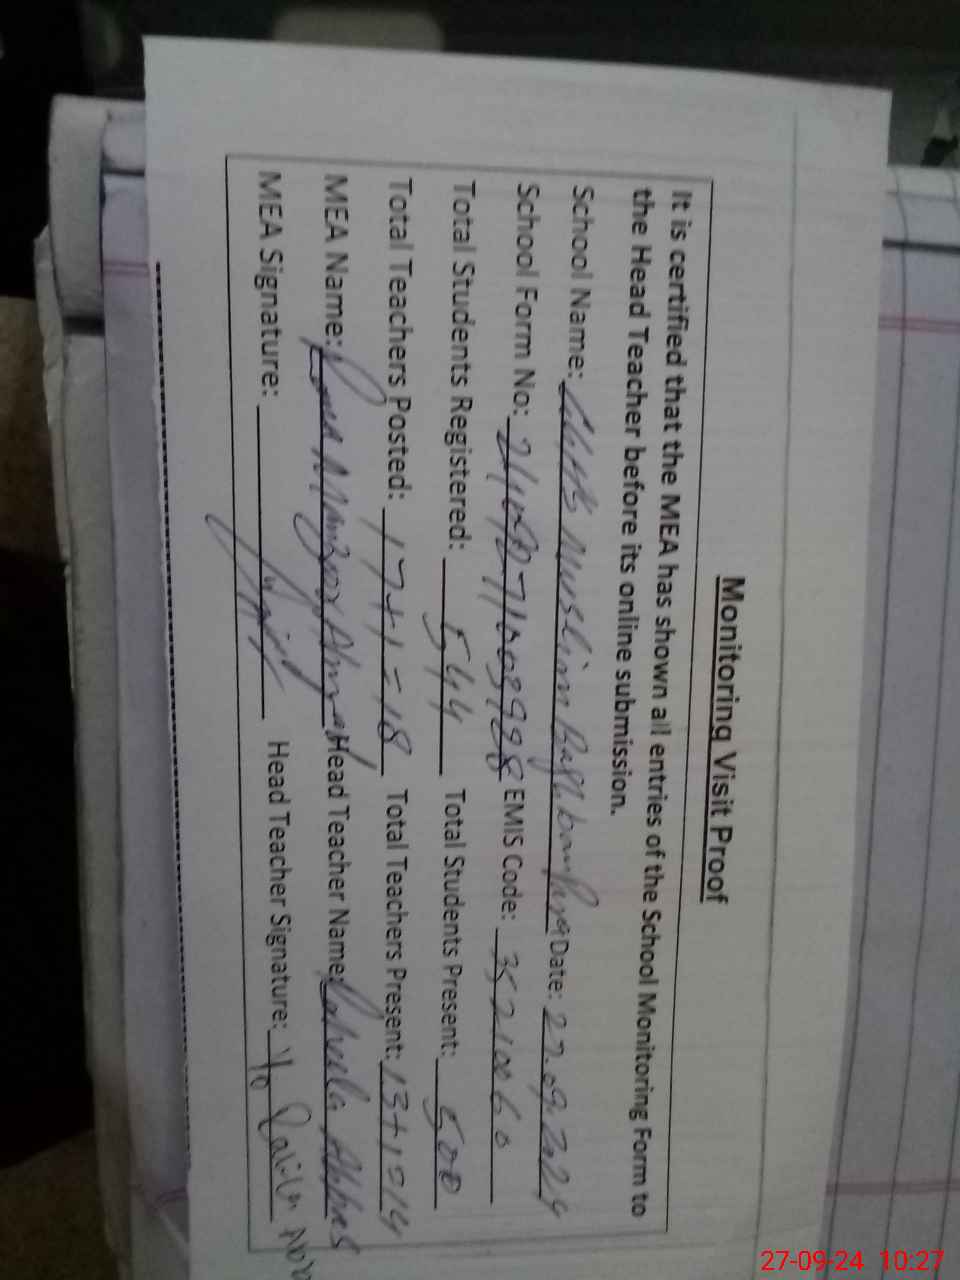 Monitoring Visit Proof
It is certified that the MEA has shown all entries of the School Monitoring Form to
the Head Teacher before its online submission.
School Name: Muslim Date: 27.09.2024
School Form No: EMIS Code: 35210060
Total Students Registered: 544 Total Students Present: 500
Total Teachers Posted: 17+1=18 Total Teachers Present: 13+1=14
MEA Name: Manzoor Ahmad Head Teacher Name: Abbas
MEA Signature: Head Teacher Signature:
27-09-24 10:27